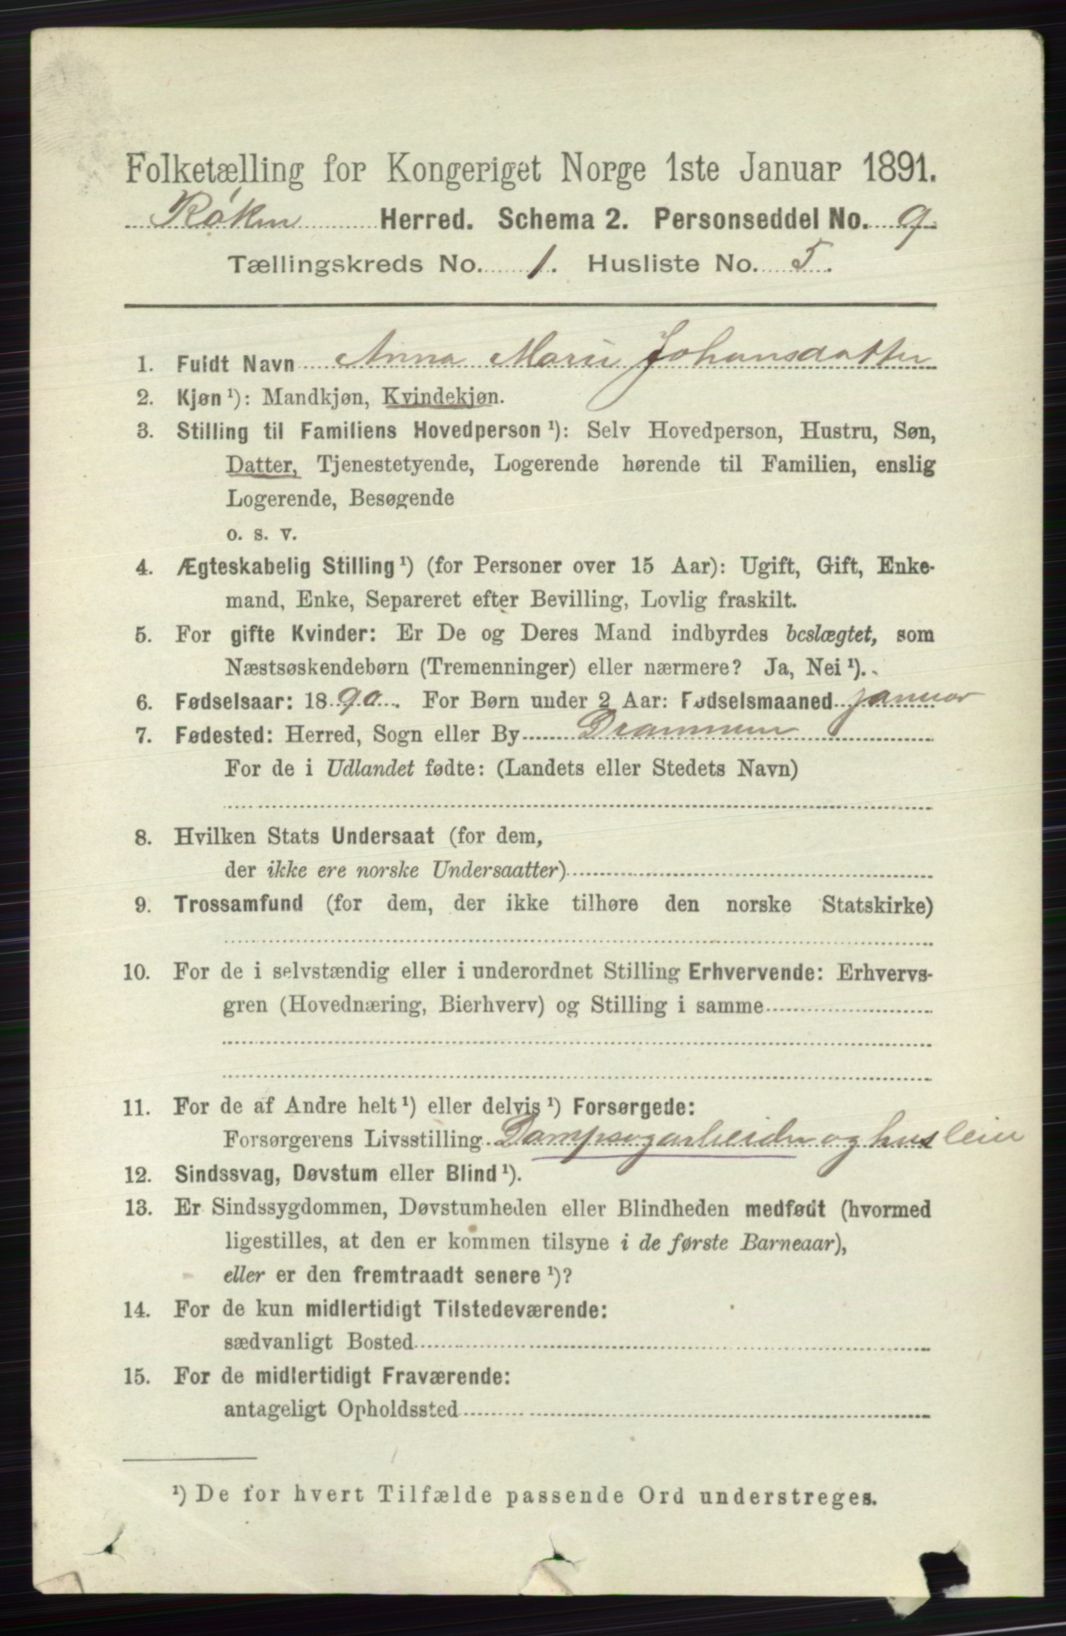 Folketælling for Kongeriget Norge 1ste Januar 1891.
Røken Herred. Schema 2. Personseddel No. 9.
Tællingskreds No. 1. Husliste No. 5.
1. Fuldt Navn Anna Marie Johansdatter
2. Kjøn ¹): Mandkjøn, Kvindekjøn.
3. Stilling til Familiens Hovedperson ¹): Selv Hovedperson, Hustru, Søn,
Datter, Tjenestetyende, Logerende hørende til Familien, enslig
Logerende, Besøgende
o. s. v.
4. Ægteskabelig Stilling ¹) (for Personer over 15 Aar): Ugift, Gift, Enke-
mand, Enke, Separeret efter Bevilling, Lovlig fraskilt.
5. For gifte Kvinder: Er De og Deres Mand indbyrdes beslægtet, som
Næstsøskendebørn (Tremenninger) eller nærmere? Ja, Nei ¹).
6. Fødselsaar: 1890. For Børn under 2 Aar: Fødselsmaaned januar
7. Fødested: Herred, Sogn eller By Drammen
For de i Udlandet fødte: (Landets eller Stedets Navn)
8. Hvilken Stats Undersaat (for dem,
der ikke ere norske Undersaatter)
9. Trossamfund (for dem, der ikke tilhøre den norske Statskirke)
10. For de i selvstændig eller i underordnet Stilling Erhvervende: Erhvervs-
gren (Hovednæring, Bierhverv) og Stilling i samme
11. For de af Andre helt ¹) eller delvis ¹) Forsørgede:
Forsørgerens Livsstilling Dampsagarbeider og husleier
12. Sindssvag, Døvstum eller Blind ¹).
13. Er Sindssygdommen, Døvstumheden eller Blindheden medfødt (hvormed
ligestilles, at den er kommen tilsyne i de første Barneaar),
eller er den fremtraadt senere ¹)?
14. For de kun midlertidigt Tilstedeværende:
sædvanligt Bosted
15. For de midlertidigt Fraværende:
antageligt Opholdssted
¹) De for hvert Tilfælde passende Ord understreges.